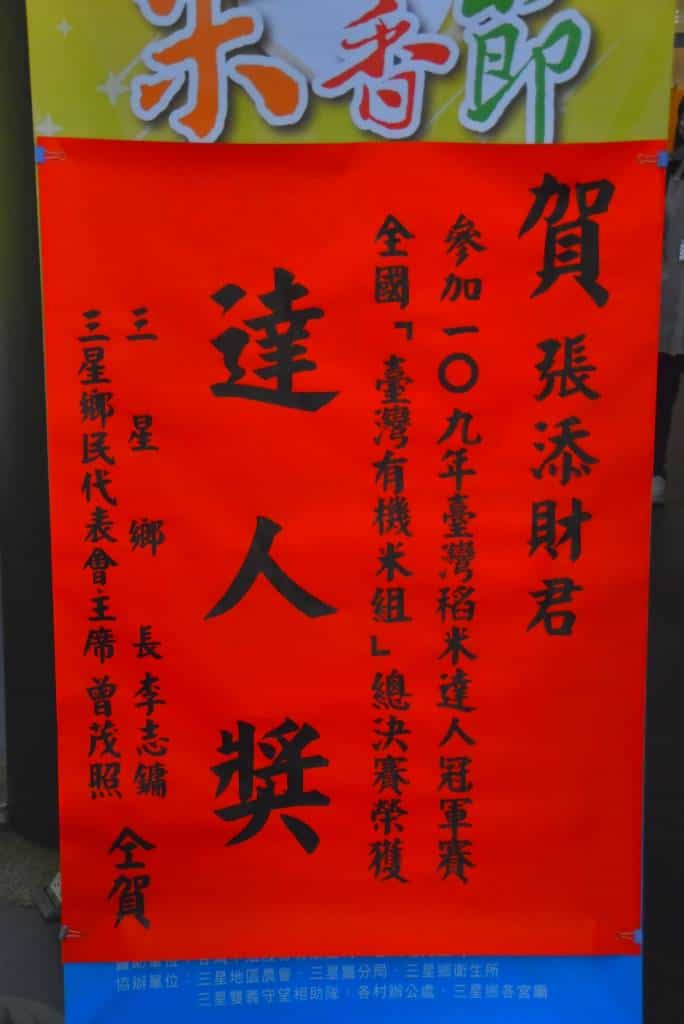 米香節
賀 張添財君
參加一〇九年臺灣稻米達人冠軍賽
全國「臺灣有機米組」總決賽榮獲
達人獎
三星鄉長李志鏞
三星鄉民代表會主席曾茂照
仝賀
協辦單位：三星地區農會、三星分局、三星鄉衛生所
三星雙義守望相助隊、各村辦公處、三星鄉各宮廟